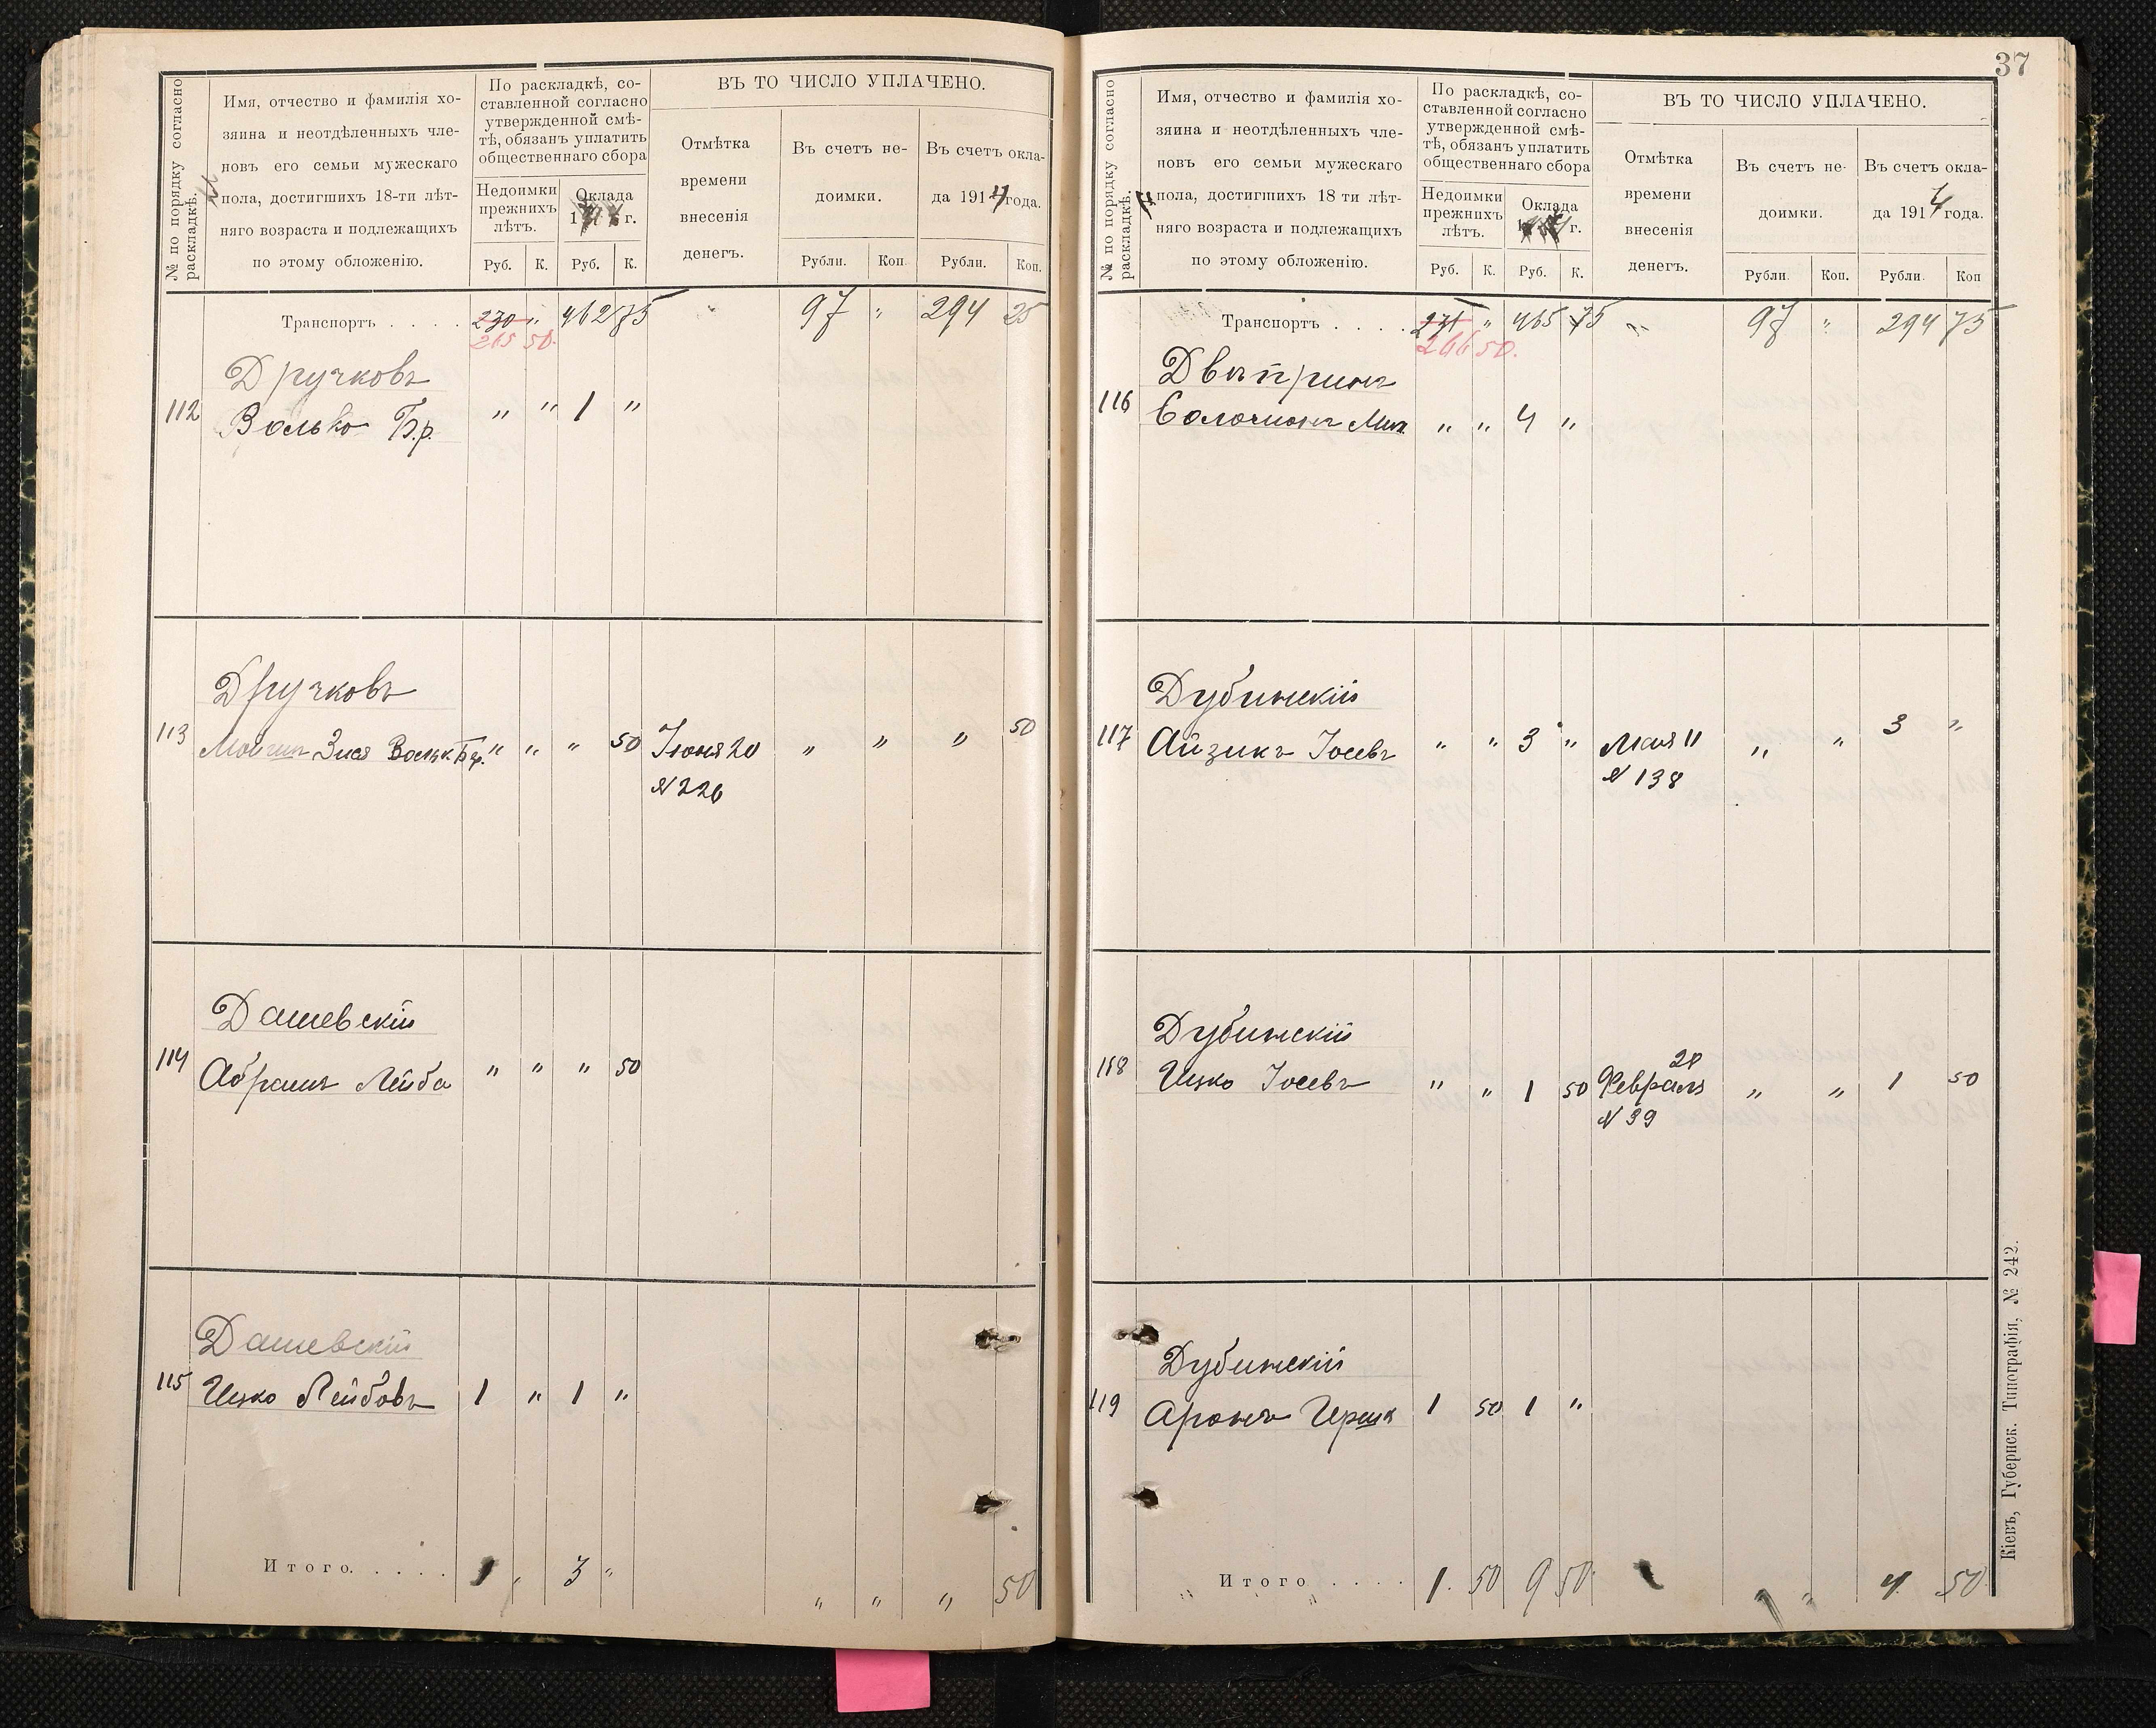 № по порядку согласно
раскладкѣ.
Имя, отчество и фамилія хо-
зяина и неотдѣленныхъ чле-
новъ его семьи мужескаго
пола, достигшихъ 18-ти лѣт-
няго возраста и подлежащихъ
по этому обложенію.
По раскладкѣ, со-
ставленной согласно
утвержденной смѣ-
тѣ, обязанъ уплатить
общественнаго сбора
Недоимки
прежнихъ
лѣтъ.
Оклада
г.
Руб. К. Руб. К.
ВЪ ТО ЧИСЛО УПЛАЧЕНО.
Отмѣтка
времени
внесенія
денегъ.
Въ счетъ не-
доимки.
Въ счетъ окла-
да 1914 года.
Рубли. Коп. Рубли. Коп.
Транспортъ . . . . 230 " 462 75 " 97 " 294 25
265 50.
Дручковъ
112 Волько Бр. " " 1 "
Дручковъ
113 Зися Вольк. Бр. " " " 50 Іюня 20 " " " 50
№ 226
Дашевскій
114 Абрамъ Лейба " " " 50
Дашевскій
115 Ицко Лейбовъ 1 " 1 "
Итого. . . . . 1 " 3 " " " " 50
37
№ по порядку согласно
раскладкѣ.
Имя, отчество и фамилія хо-
зяина и неотдѣленныхъ чле-
новъ его семьи мужескаго
пола, достигшихъ 18 ти лѣт-
няго возраста и подлежащихъ
по этому обложенію.
По раскладкѣ, со-
ставленной согласно
утвержденной смѣ-
тѣ, обязанъ уплатить
общественнаго сбора
Недоимки
прежнихъ
лѣтъ.
Оклада
г.
Руб. К. Руб. К.
ВЪ ТО ЧИСЛО УПЛАЧЕНО.
Отмѣтка
времени
внесенія
денегъ.
Въ счетъ не-
доимки.
Въ счетъ окла-
да 1914 года.
Рубли. Коп. Рубли. Коп
Транспортъ . . . . 231 " 465 75 " 97 " 294 75
266 50.
116 " " 4 "
Дубинскій
117 Айзикъ Іосевъ " " 3 " Мая 11 " " 3 "
№ 138
Дубинскій
118 Ицко Іосевъ " " 1 50 Февраля 20 " " 1 50
№ 39
Дубинскій
119 Аронъ Ершк 1 50 1 "
Итого . . . . 1. 50 9 50. " 4. 50
Кіевъ, Губернск. Типографія, № 242.